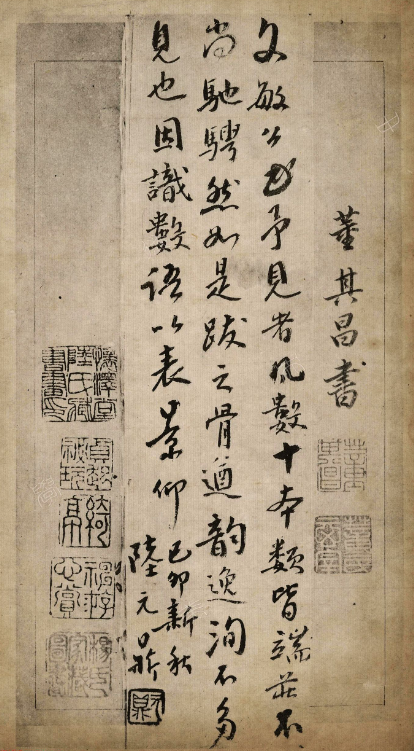 董其昌書
文敏公書予見者凡數十本類皆端莊不
尚馳騁然如是跋之骨遒韻逸洵不多
見也因識數語以表景仰
己卯新秋
陸元